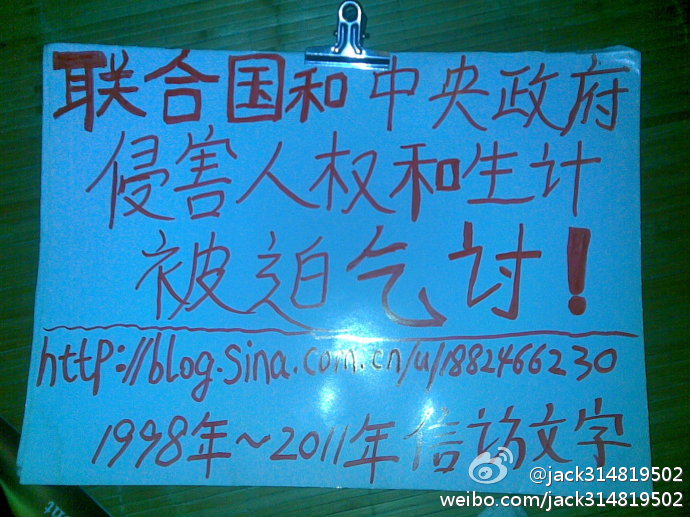 联合国和中央政府
侵害人权和生计
被迫乞讨!
http://blog.sina.com.cn/u/1882466230
1998年~2011年信访文字
@jack314819502
weibo.com/jack314819502